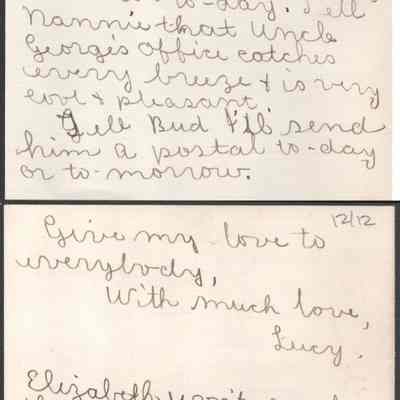 to-day. Tell
Nannie that Uncle
George's office catches
every breeze & is very
cool & pleasant.
Tell Bud I'll send
him a postal to-day
or to-morrow.
12/12
Give my love to
everybody,
With much love,
Lucy.
Elizabeth